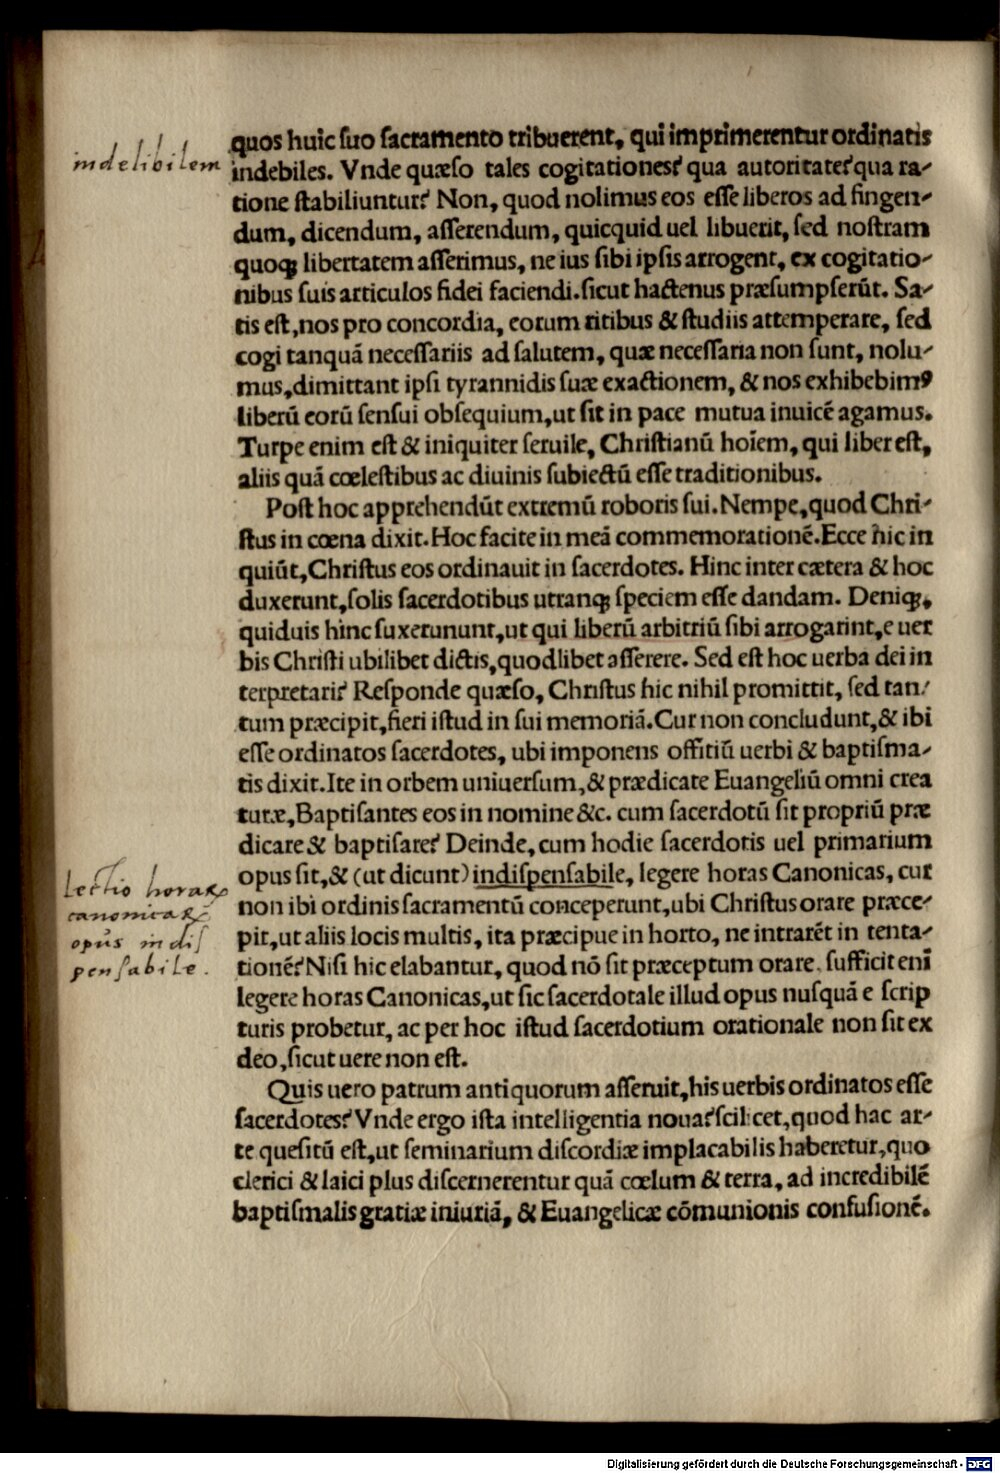 indelibilem
quos huic ſuo ſacramento tribuerent, qui imprimerentur ordinatis
indebiles. Vnde quæſo tales cogitationes? qua autoritate? qua ra-
tione ſtabiliuntur? Non, quod nolimus eos eſſe liberos ad fingen-
dum, dicendum, aſſerendum, quicquid uel libuerit, ſed noſtram
quoqꝫ libertatem aſſerimus, ne ius ſibi ipſis arrogent, ex cogitatio-
nibus ſuis articulos fidei faciendi. ſicut hactenus præſumpſerūt. Sa-
tis eſt, nos pro concordia, eorum ritibus & ſtudiis attemperare, ſed
cogi tanquā neceſſariis ad ſalutem, quæ neceſſaria non ſunt, nolu-
mus, dimittant ipſi tyrannidis ſuæ exactionem, & nos exhibebimꝰ
liberū eorū ſenſui obſequium, ut ſit in pace mutua inuicē agamus.
Turpe enim eſt & iniquiter ſeruile, Chriſtianū hoīem, qui liber eſt,
aliis quā cœleſtibus ac diuinis ſubiectū eſſe traditionibus.
Poſt hoc apprehendūt extremū roboris ſui. Nempe, quod Chri-
ſtus in cœna dixit. Hoc facite in meā commemorationē. Ecce hic in
quiūt, Chriſtus eos ordinauit in ſacerdotes. Hinc inter cætera & hoc
duxerunt, ſolis ſacerdotibus utranqꝫ ſpeciem eſſe dandam. Deniqꝫ,
quiduis hinc ſuxerununt, ut qui liberū arbitriū ſibi arrogarint, e uer
bis Chriſti ubilibet dictis, quodlibet aſſerere. Sed eſt hoc uerba dei in
terpretari? Reſponde quæſo, Chriſtus hic nihil promittit, ſed tan-
tum præcipit, fieri iſtud in ſui memoriā. Cur non concludunt, & ibi
eſſe ordinatos ſacerdotes, ubi imponens offitiū uerbi & baptiſma-
tis dixit. Ite in orbem uniuerſum, & prædicate Euangeliū omni crea
turæ, Baptiſantes eos in nomine &c. cum ſacerdotū ſit propriū præ
dicare & baptiſare? Deinde, cum hodie ſacerdotis uel primarium
opus ſit, & (ut dicunt) indiſpenſabile, legere horas Canonicas, cur
non ibi ordinis ſacramentū conceperunt, ubi Chriſtus orare præce-
pit, ut aliis locis multis, ita præcipue in horto, ne intrarēt in tenta-
tionē? Niſi hic elabantur, quod nō ſit præceptum orare. ſufficit enī
legere horas Canonicas, ut ſic ſacerdotale illud opus nuſquā e ſcrip
turis probetur, ac per hoc iſtud ſacerdotium orationale non ſit ex
deo, ſicut uere non eſt.
lectio horaꝝ
canonicaꝝ
opus indiſ
penſabile.
Quis uero patrum antiquorum aſſeruit, his uerbis ordinatos eſſe
ſacerdotes? Vnde ergo iſta intelligentia noua? ſcilicet, quod hac ar-
te queſitū eſt, ut ſeminarium diſcordiæ implacabilis haberetur, quo
clerici & laici plus diſcernerentur quā cœlum & terra, ad incredibilē
baptiſmalis gratiæ iniuriā, & Euangelicæ cōmunionis confuſionē.
Digitalisierung gefördert durch die Deutsche Forschungsgemeinschaft - DFG